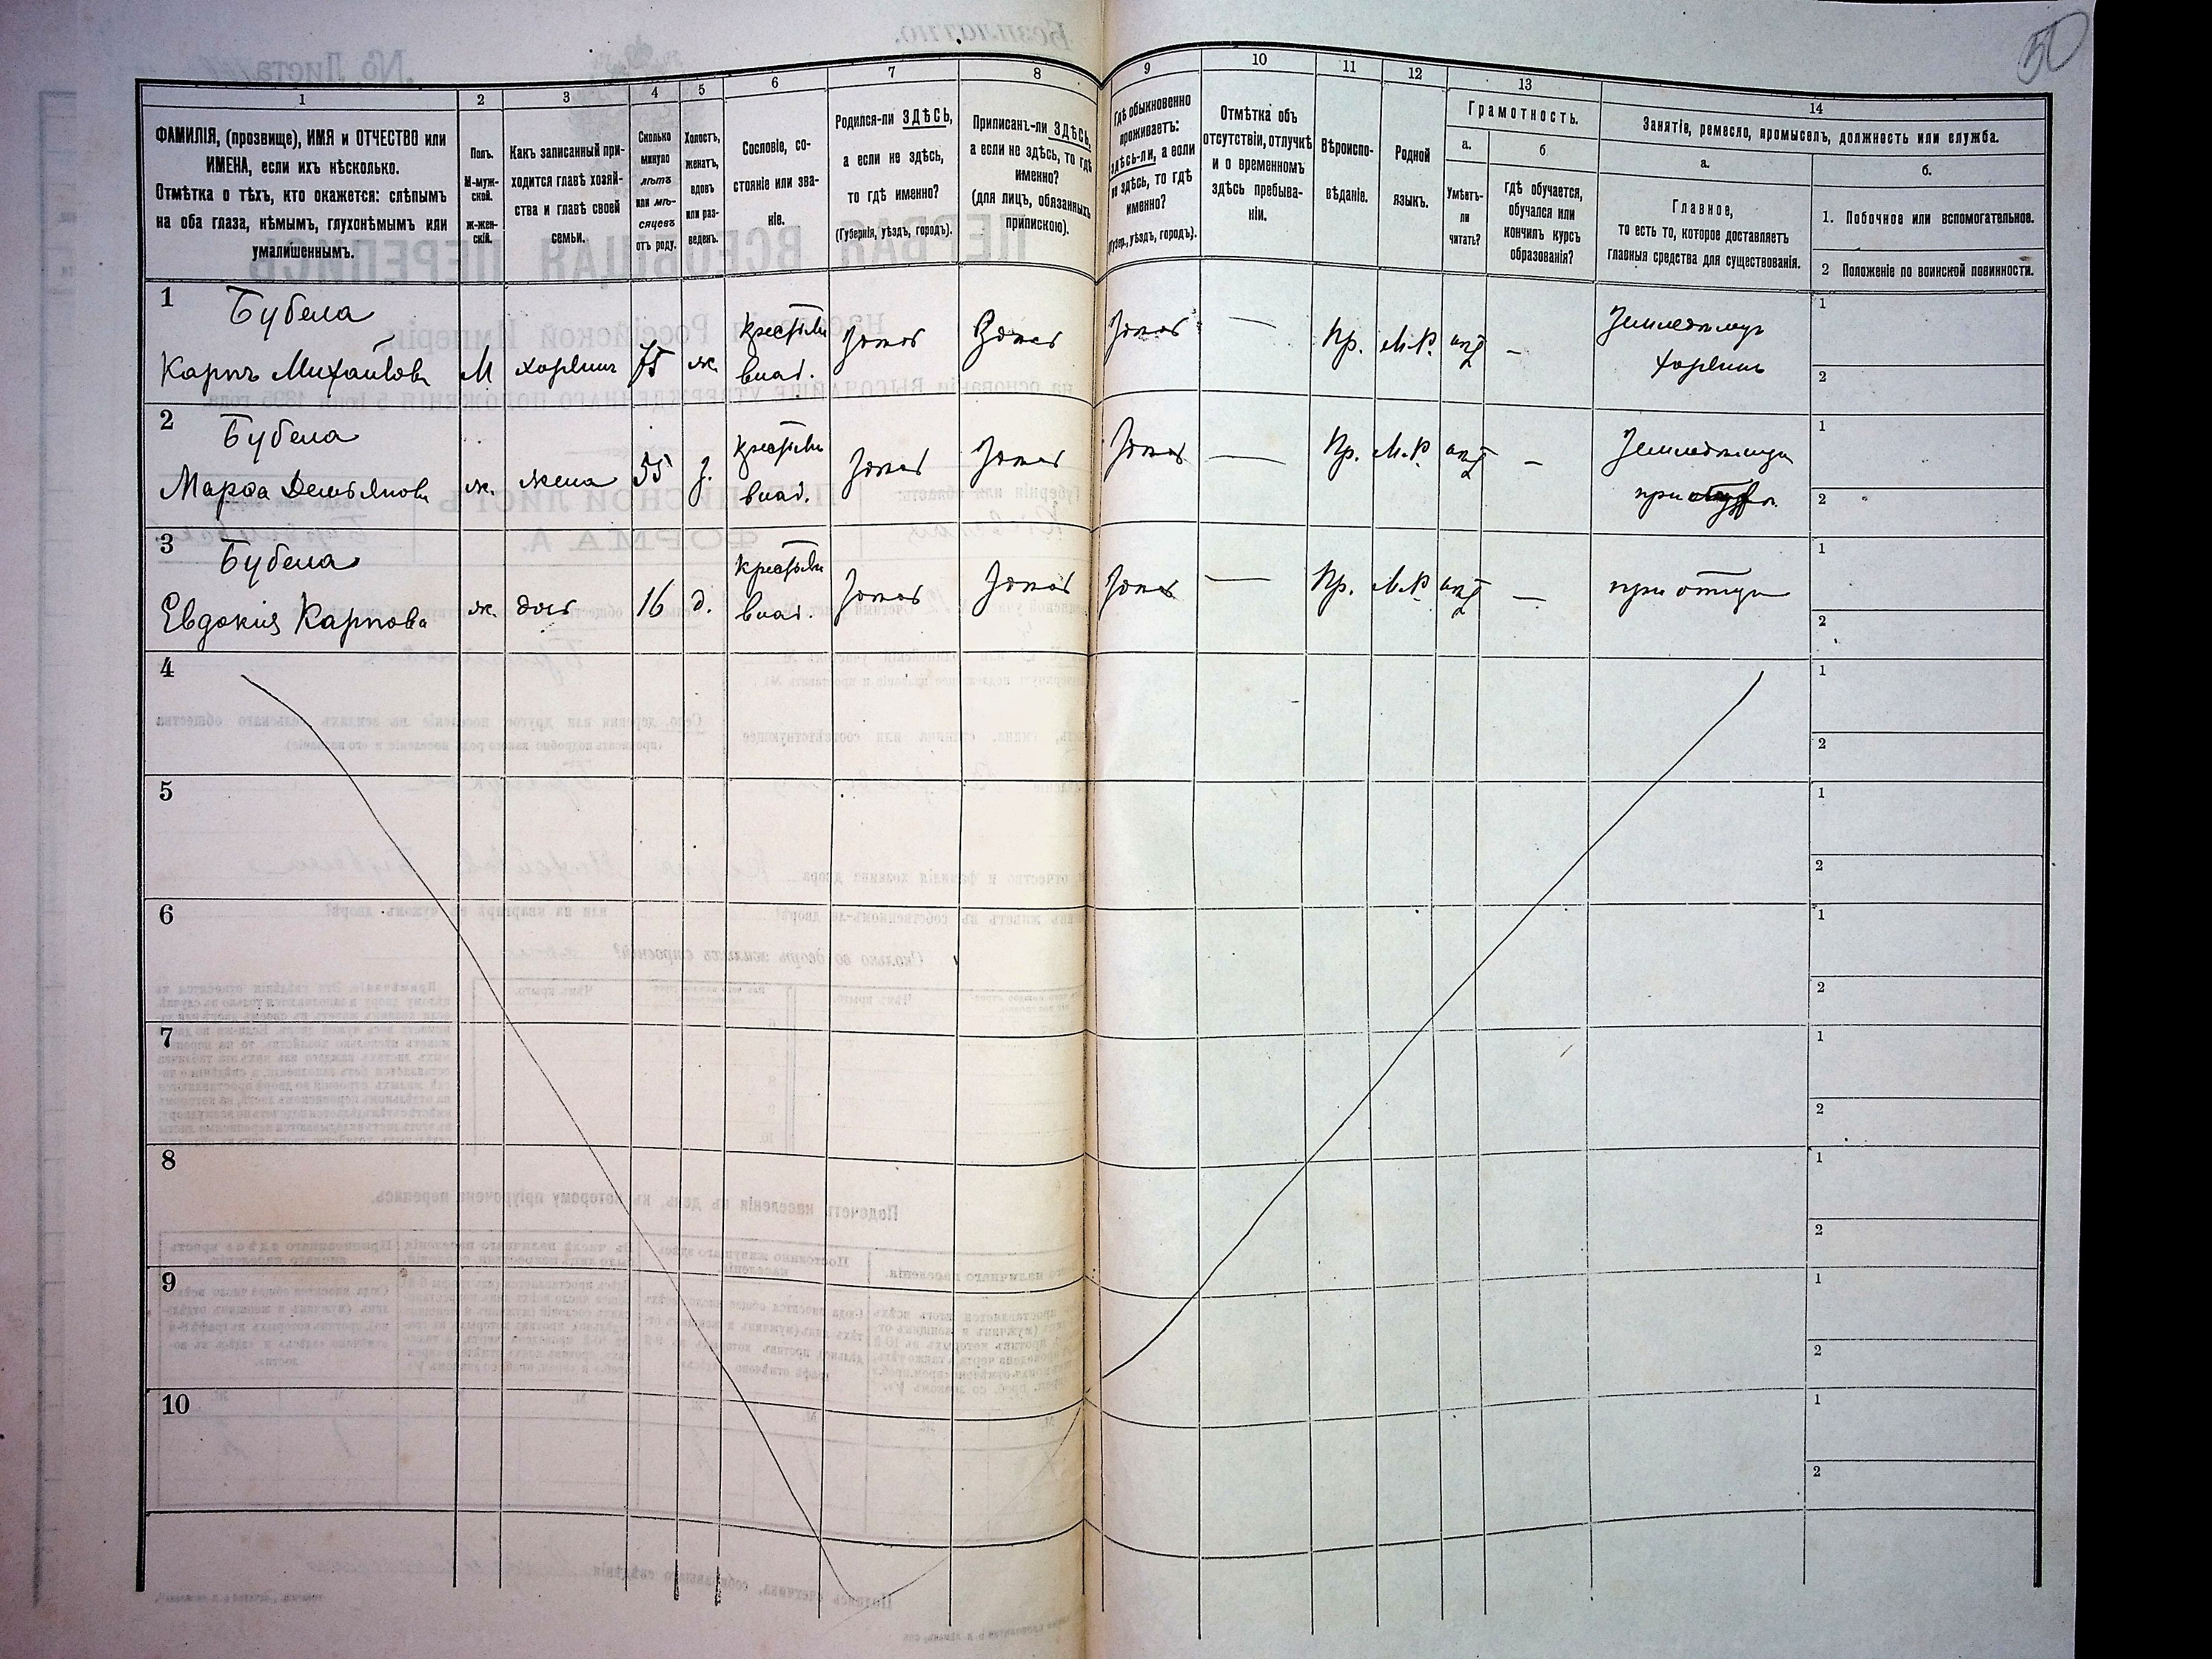 50
1
2
3
4
5
6
7
8
9
10
11
12
13
14
ФАМИЛІЯ, (прозвище), ИМЯ и ОТЧЕСТВО или
ИМЕНА, если ихъ нѣсколько.
Отмѣтка о тѣхъ, кто окажется: слѣпымъ
на оба глаза, нѣмымъ, глухонѣмымъ или
умалишеннымъ.
Полъ.
М-муж-
ской.
Ж-жен-
скій.
Какъ записанный при-
ходится главѣ хозяй-
ства и главѣ своей
семьи.
Сколько
минуло
лѣтъ
или мѣ-
сяцевъ
отъ роду.
Холостъ,
женатъ,
вдовъ
или раз-
веденъ.
Сословіе, со-
стояніе или зва-
ніе.
Родился-ли ЗДѢСЬ,
а если не здѣсь,
то гдѣ именно?
(Губернія, уѣздъ, городъ).
Приписанъ-ли ЗДѢСЬ,
а если не здѣсь, то гдѣ
именно?
(для лицъ, обязанныхъ
припискою).
Гдѣ обыкновенно
проживаетъ:
здѣсь-ли, а если
не здѣсь, то гдѣ
именно?
(Губер., уѣздъ, городъ).
Отмѣтка объ
отсутствіи, отлучкѣ
и о временномъ
здѣсь пребыва-
ніи.
Вѣроиспо-
вѣданіе.
Родной
языкъ.
Грамотность.
а.
Умѣетъ-
ли
читать?
б
гдѣ обучается,
обучался или
кончилъ курсъ
образованія?
Занятіе, ремесло, промыселъ, должность или служба.
а.
Главное,
то есть то, которое доставляетъ
главныя средства для существованія.
б.
1. Побочное или вспомогательное.
2 Положеніе по воинской повинности.
1
Бубела
Карпъ Михайловъ
М
хозяинъ
75
ж.
крестьян
влад.
Здѣсь
Здѣсь
Здѣсь
—
Пр.
М.Р.
нѣт
—
Земледѣлецъ
хозяинъ
1
2
2
Бубела
Марфа Демьянова
ж.
жена
55
з.
крестьян
влад.
Здѣсь
Здѣсь
Здѣсь
—
Пр.
М.Р
нѣт
—
при
1
2
3
Бубела
Евдокия Карпова
ж.
дочь
16
д.
крестьян
влад.
Здѣсь
Здѣсь
Здѣсь
—
Пр.
М.Р
нѣт
—
при отцѣ
1
2
4
1
2
5
1
2
6
1
2
7
1
2
8
1
2
9
1
2
10
1
2